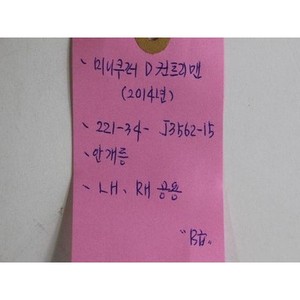 、 미니쿠퍼 D 컨트리맨
(2014년)
、 221-34- J3562-15
、 안개등
、 LH、RH 공용
"B급"